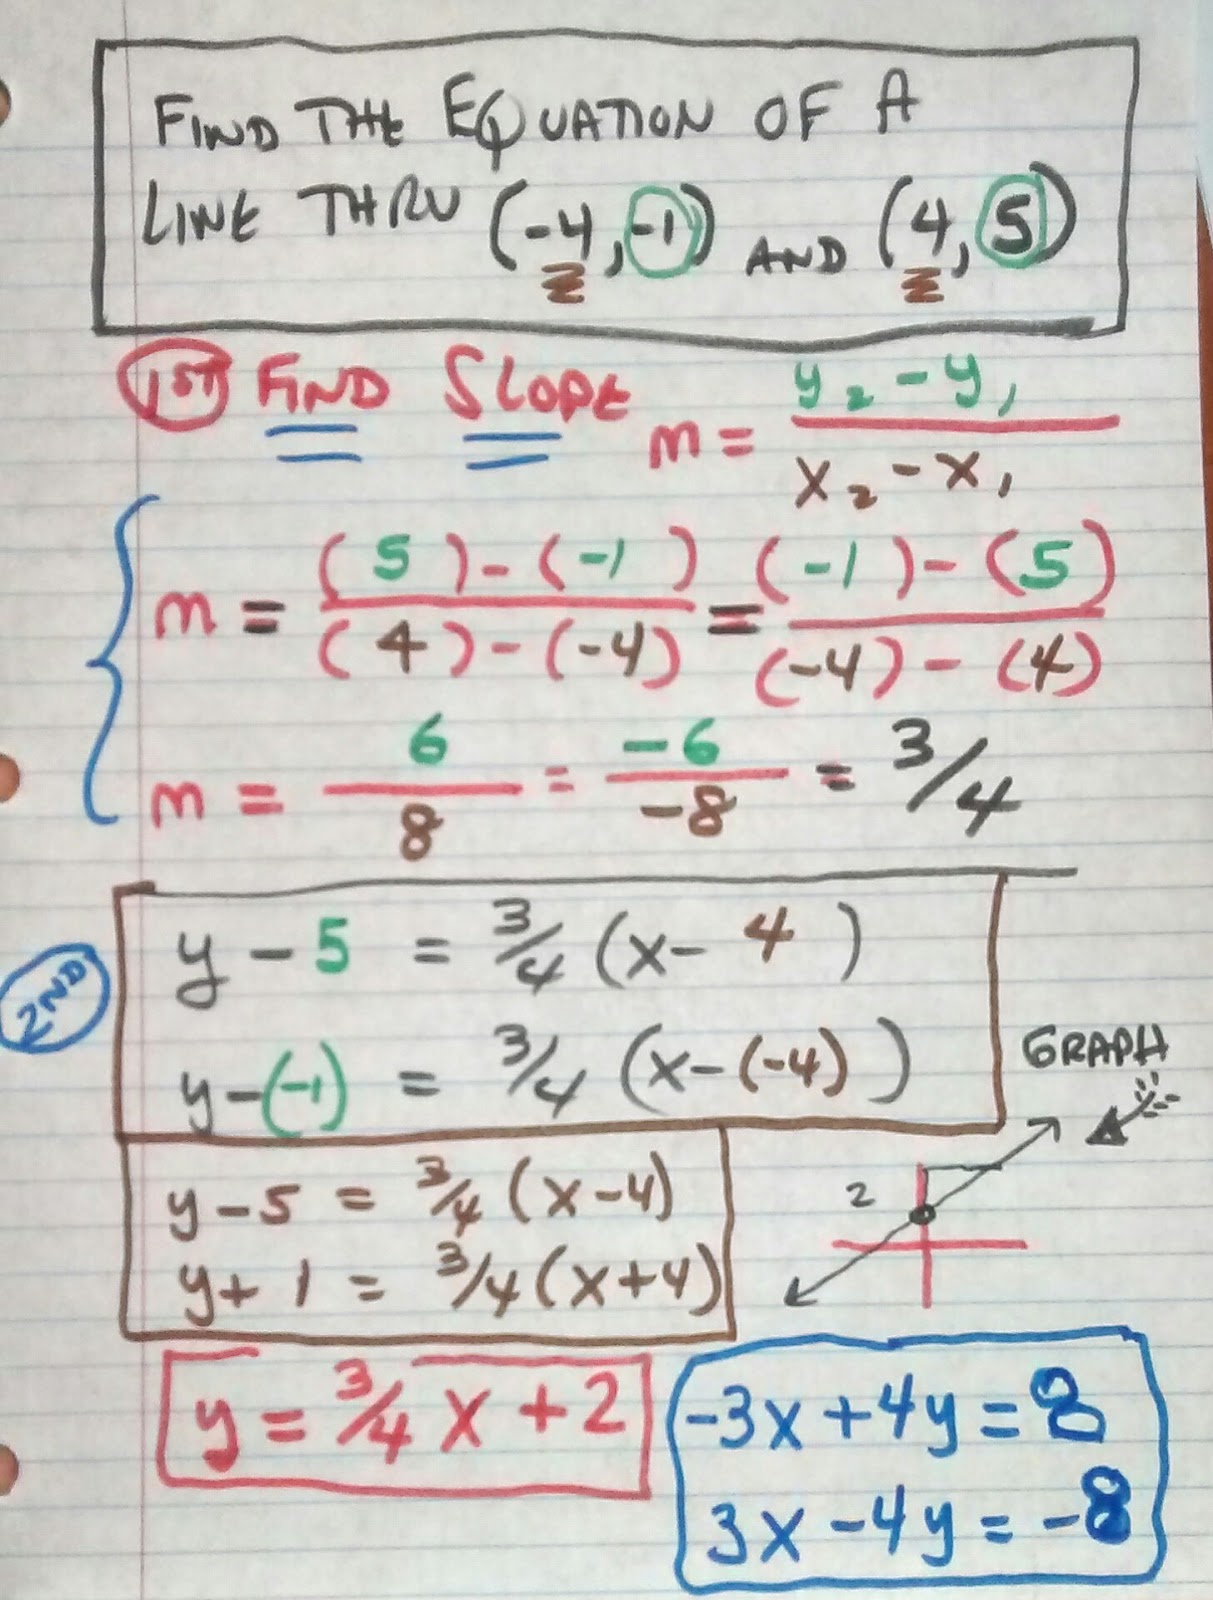 FIND THE EQUATION OF A
LINE THRU (-4,-1) AND (4,5)
1ST FIND SLOPE m = y₂-y₁/x₂-x₁
m = (5)-(-1)/(4)-(-4) = (-1)-(5)/(-4)-(4)
m = 6/8 = -6/-8 = 3/4
2ND
y-5 = 3/4(x-4)
y-(-1) = 3/4(x-(-4))
GRAPH
y-5 = 3/4(x-4)
2
y+1 = 3/4(x+4)
y=3/4x+2
-3x+4y=8
3x-4y=-8